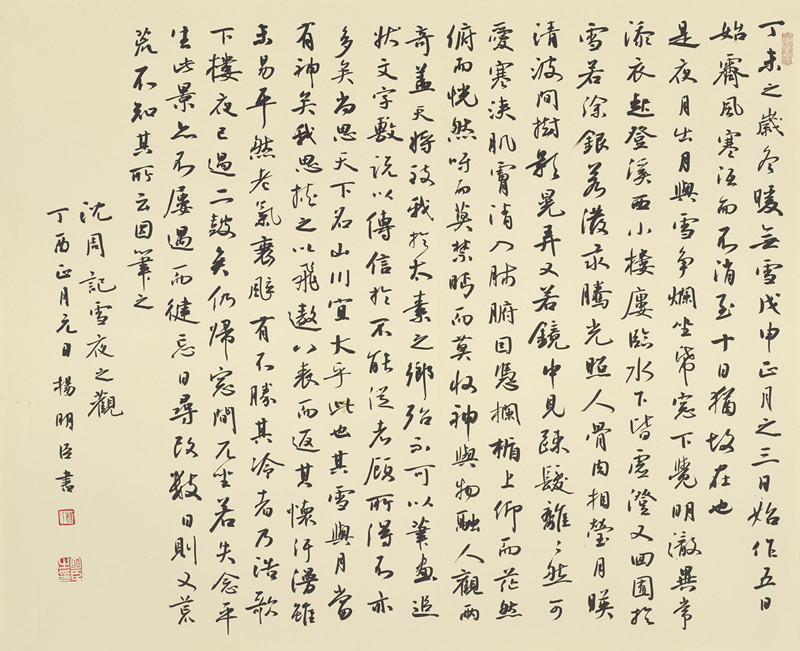 丁未之歲冬暖無雪戊申正月之三日始作五日
始霽風寒沍而不消至十日猶故在也
是夜月出月與雪爭爛坐紙窓下覺明徹異常
添衣起登溪西小樓樓臨水下皆虛澄又四圍於
雪若塗銀若潑汞騰光照人骨肉相瑩月暎
清波間樹影晃弄又若鏡中見疎髮離〻然可
愛寒浹肌膚清入肺腑因憑欄楯上仰而茫然
俯而恍然呀而莫禁眄而莫收神與物融人觀兩
奇蓋天將致我於太素之鄉殆不可以筆畫追
狀文字敷說以傳信於不能從者顧所得不亦
多矣尚思天下名山川宜大乎此也其雪與月當
有神矣我思挾之以飛遨八表而返其懷汗漫雖
未易平然老氣衰颯有不勝其冷者乃浩歌
下樓夜已過二鼓矣仍歸窓間兀坐若失念平
生此景亦不屢遇而健忘日尋改數日則又荒
荒不知其所云因筆之
沈周記雪夜之觀
丁酉正月元日楊明臣書